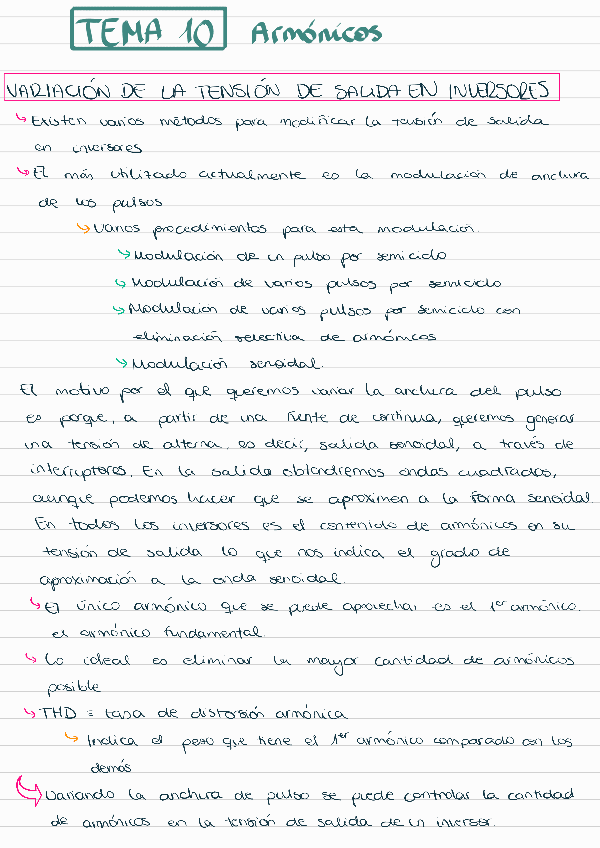 TEMA 10 Armónicos
VARIACIÓN DE LA TENSIÓN DE SALIDA EN INVERSORES
Existen varios métodos para modificar la tensión de salida
en inversores
El más utilizado actualmente es la modulación de anchura
de los pulsos
Varios procedimientos para esta modulación.
Modulación de un pulso por semiciclo
Modulación de varios pulsos por semiciclo
Modulación de varios pulsos por semiciclo con
eliminación selectiva de armónicos
Modulación senoidal.
El motivo por el que queremos variar la anchura del pulso
es porque, a partir de una fuente de continua, queremos generar
una tensión de alterna, es decir, salida senoidal, a través de
interruptores. En la salida obtendremos ondas cuadradas,
aunque podemos hacer que se aproximen a la forma senoidal.
En todos los inversores es el contenido de armónicos en su
tensión de salida lo que nos indica el grado de
aproximación a la onda senoidal.
El único armónico que se puede aprovechar es el 1er armónico.
el armónico fundamental.
Lo ideal es eliminar la mayor cantidad de armónicos
posible
THD = tasa de distorsión armónica
Indica el peso que tiene el 1er armónico comparado con los
demás
Variando la anchura de pulso se puede controlar la cantidad
de armónicos en la tensión de salida de un inversor.